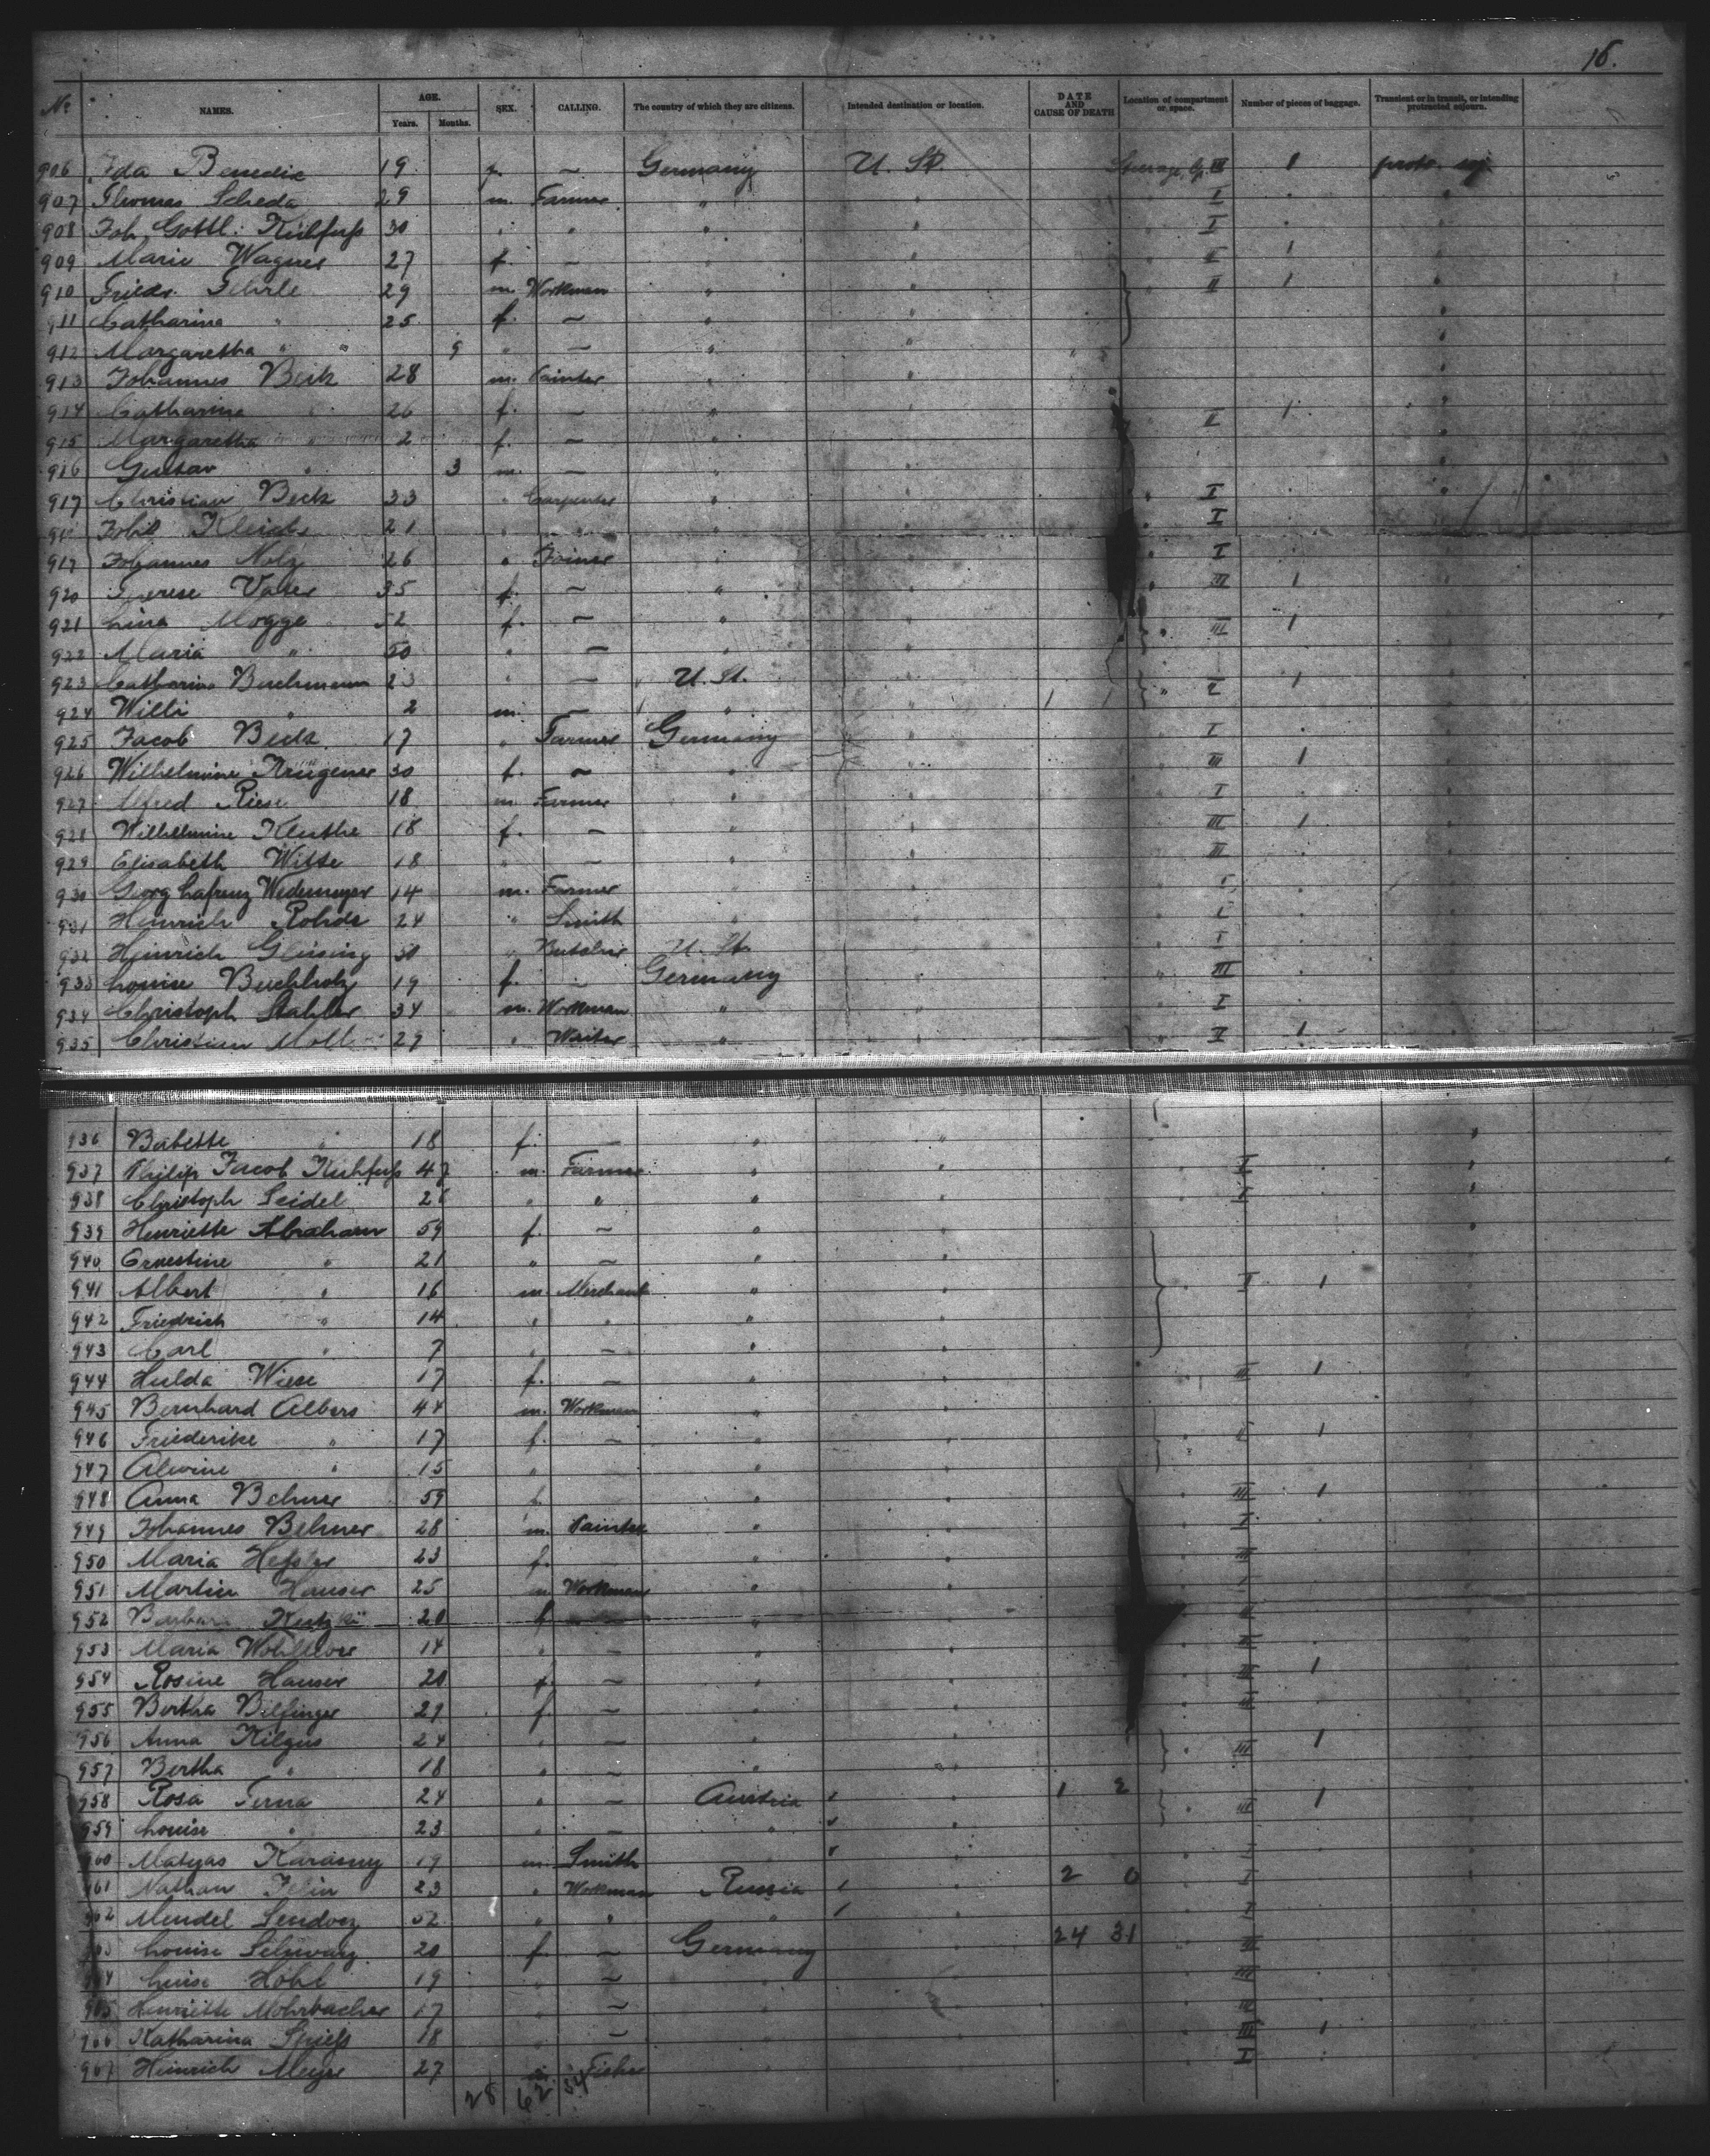 16.
No NAMES. AGE. Years. Months. SEX. CALLING. The country of which they are citizens. Intended destination or location. DATE AND CAUSE OF DEATH Location of compartment or space. Number of pieces of baggage. Transient or in transit, or intending protracted sojourn.
906 Ida Benedix 19 f. — Germany U. St. Steerage III 1
907 Thomas Scheda 29 m. Farmer " " I " "
908 Joh. Gottl. Kühfuß 30 " " " " I " "
909 Marie Wagner 27 f. — " " II 1 "
910 Friedr. Fehrle 29 m. Workman " " II 1 "
911 Catharina " 25 f. — " " "
912 Margaretha " 9 " — " " "
913 Johannes Beck 28 m. Painter " " "
914 Catharina " 26 f. — " " II 1 "
915 Margaretha " 2 f. — " " "
916 Gustav " 3 m. — " " "
917 Christian Beck 33 " Carpenter " " I " "
21 " " " " I " "
Johannes Nolz 26 " Joiner " " I " "
920 Therese 35 f. — " " III 1 "
921 Lina Mogge 52 f. — " " III 1 "
922 Maria " 50 " — " " "
923 Catharina Bachmann 23 " — U. St. " 1 "
924 Willi " 2 m. — " " "
925 Jacob Beck 17 " Farmer Germany " I " "
926 Wilhelmine Krügener 30 f. — " " III 1 "
927 Alfred Riese 18 m. Farmer " " I " "
928 Wilhelmine Kluthe 18 f. — " " III 1 "
929 Elisabeth Witte 18 " — " " III " "
930 Georg Lafrenz Wedemeyer 14 m. Farmer " " I " "
931 Heinrich Rohde 24 " Smith " " I " "
932 Heinrich Geusing 50 " Butcher U. St. " I " "
933 Louise Buchholz 19 f. — Germany " III " "
934 Christoph Stahler 34 m. Workman " " I " "
935 Christian Moll 29 " Waiter " " II 1 "
936 Babette " 18 f. — " " "
937 Philip Jacob Kühfuß 47 m. Farmer " " I " "
938 Christoph Seidel 26 " " " " I " "
939 Henriette Abraham 59 f. — " " "
940 Ernestine " 21 " — " " "
941 Albert " 16 m. Merchant " " II 1 "
942 Friedrich " 14 " " " " "
943 Carl " 7 " — " " "
944 Hulda Wiese 17 f. — " " III 1 "
945 Bernhard Albers 44 m. Workman " " "
946 Friederike " 17 f. — " " II 1 "
947 Alwine " 15 " — " " "
948 Anna Behner 59 f. " " III 1 "
949 Johannes Behner 28 m. Painter " " I " "
950 Maria Heßler 23 f. " " III " "
951 Martin Hauser 25 m. Workman " " I " "
952 Barbara 20 f. " " III " "
953 Maria 14 " — " " III " "
954 Rosine Hauser 20 f. — " " III 1 "
955 Bertha Bilfinger 29 f. — " " III " "
956 Anna Kilgus 24 " — " " III 1 "
957 Bertha " 18 " — " " "
958 Rosa Ferna 24 " — Austria " 1 2 III 1 "
959 Louise " 23 " — " " "
Matyas Karasny 19 m. Smith " I " "
961 Nathan 23 " Workman Russia " 2 0 I " "
Mendel 52 " " " " I " "
Louise Schwarz 20 f. — Germany " 24 31 III " "
Luise Höhl 19 " — " " III " "
Henriette Mohrbacher 17 " — " " III " "
966 Katharina Spieß 18 " — " " III 1 "
967 Heinrich Meyer 27 m. " " I " "
28 62 54